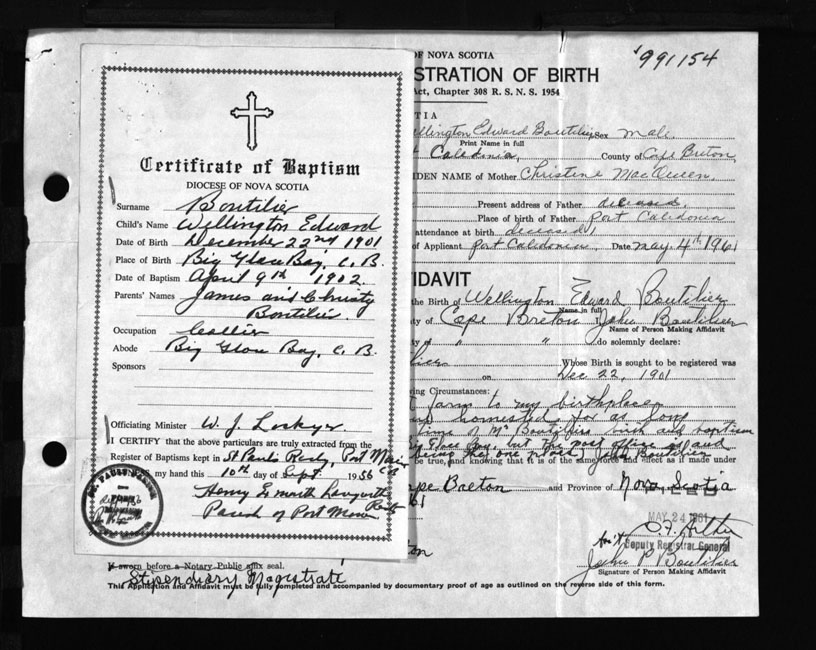 Certificate of Baptism
DIOCESE OF NOVA SCOTIA
Surname Boutilier
Child's Name Wellington Edward
Date of Birth December 22nd 1901
Place of Birth Big Glace Bay, C. B.
Date of Baptism April 9th 1902
Parents' Names James and Christy
Boutilier.
Occupation Collier
Abode Big Glace Bay, C. B.
Sponsors
Officiating Minister W. J. Lockyer
I CERTIFY that the above particulars are truly extracted from the
Register of Baptisms kept in St Pauls Port
my hand this 10th day of Sept. 1956
Henry
Rector
Parish of Port Morien
OF NOVA SCOTIA
'991154
STRATION OF BIRTH
Act, Chapter 308 R. S. N. S. 1954
TIA
ellington Edward Boutilier Sex male
Print Name in full
t Caledonia, County of Cape Breton,
IDEN NAME of Mother Christine MacQueen.
Present address of Father deceased.
Place of birth of Father Port Caledonia
attendance at birth deceased
of Applicant Port Caledonia, Date May. 4th 1961
FIDAVIT
the Birth of Wellington Edward Boutilier
Name in full
ty of Cape Breton John Boutilier
Name of Person Making Affidavit
of " " do solemnly declare:
lier Whose Birth is sought to be registered was
on Dec 22, 1901
ving Circumstances:
farm to my birthplace
homestead, for as long
of Mr Boutiliers birth and baptism
Glace Bay, but the post office
being the one place, John Boutilier
be true, and knowing that it is of the same force and effect as if made under
ape Breton and Province of Nova Scotia
61
MAY 24 1961
Deputy Registrar General
John P Boutilier
Signature of Person Making Affidavit
ton
sworn before a Notary Public affix seal.
Stipendiary Magistrate
This Application and Affidavit must be fully completed and accompanied by documentary proof of age as outlined on the reverse side of this form.